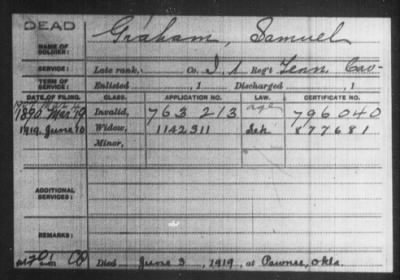 DEAD
NAME OF SOLDIER: Graham, Samuel
SERVICE: Late rank, Co. I, 1 Reg't Tenn. Cav.
TERM OF SERVICE: Enlisted , 1 Discharged , 1
DATE OF FILING. CLASS. APPLICATION NO. LAW. CERTIFICATE NO.
1890 Mar 19 Invalid, 763 213 age 796040
1919. June 10 Widow, 1142311 877681
Minor,
ADDITIONAL SERVICES:
REMARKS:
Died June 3, 1919, at Pawnee, Okla.